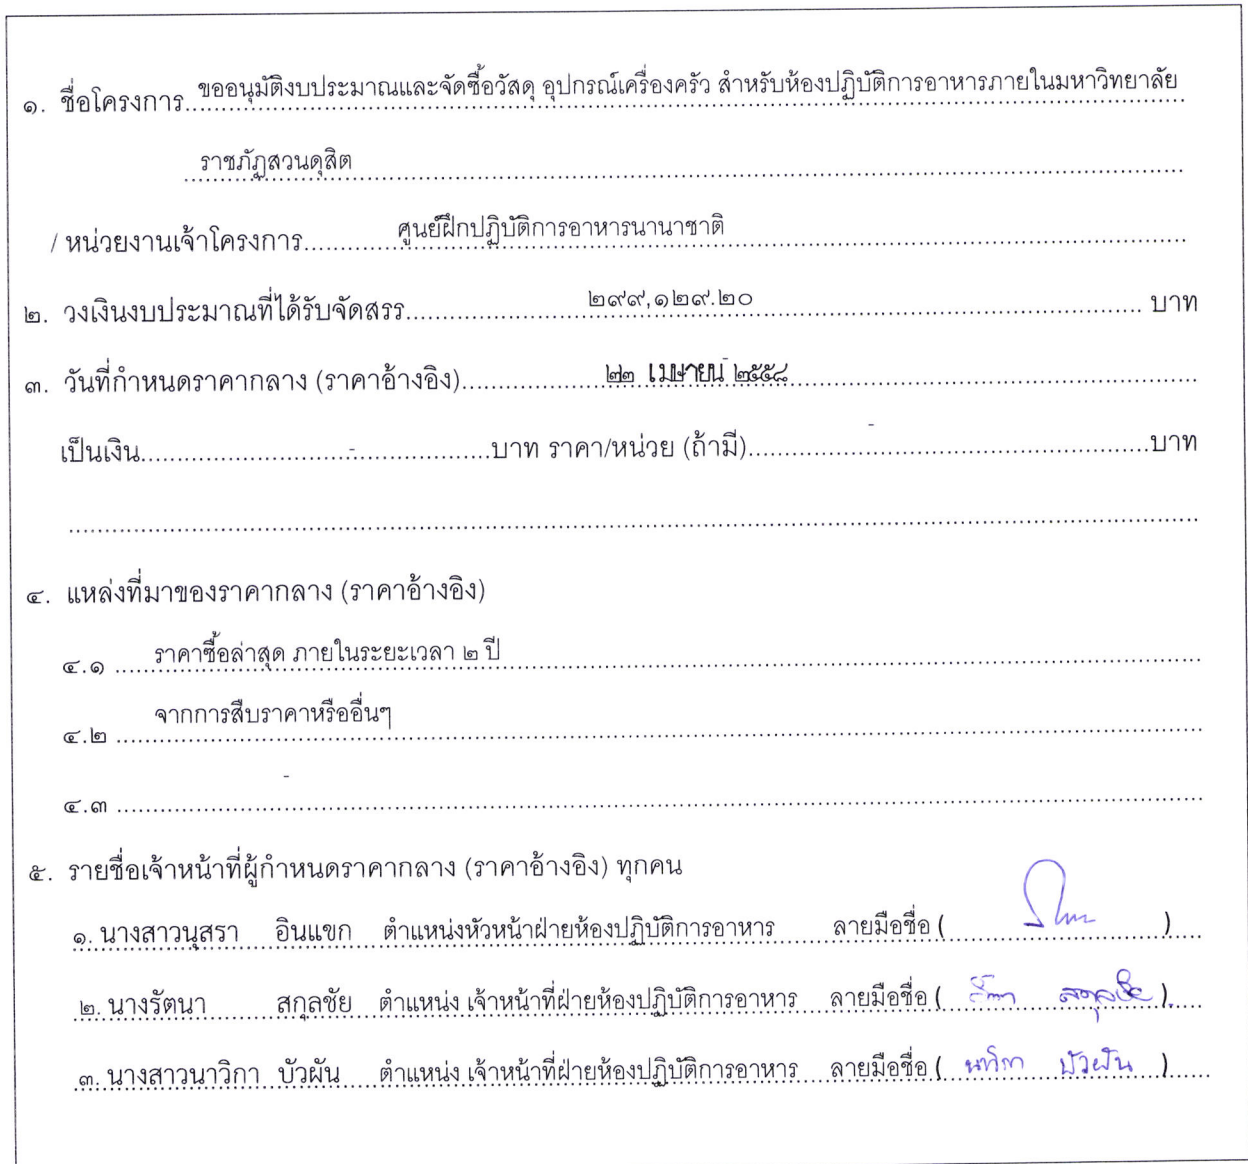 ๑. ชื่อโครงการ ขออนุมัติงบประมาณและจัดซื้อวัสดุ อุปกรณ์เครื่องครัว สำหรับห้องปฏิบัติการอาหารภายในมหาวิทยาลัย
ราชภัฏสวนดุสิต
/ หน่วยงานเจ้าโครงการ ศูนย์ฝึกปฏิบัติการอาหารนานาชาติ
๒. วงเงินงบประมาณที่ได้รับจัดสรร ๒๙๙,๑๒๙.๒๐ บาท
๓. วันที่กำหนดราคากลาง (ราคาอ้างอิง) ๒๓ เมษายน ๒๕๕๘
เป็นเงิน - บาท ราคา/หน่วย (ถ้ามี) - บาท
๔. แหล่งที่มาของราคากลาง (ราคาอ้างอิง)
๔.๑ ราคาซื้อล่าสุด ภายในระยะเวลา ๒ ปี
๔.๒ จากการสืบราคาหรืออื่นๆ
๔.๓ -
๕. รายชื่อเจ้าหน้าที่ผู้กำหนดราคากลาง (ราคาอ้างอิง) ทุกคน
๑. นางสาวนุสรา อินแขก ตำแหน่งหัวหน้าฝ่ายห้องปฏิบัติการอาหาร ลายมือชื่อ ( )
๒. นางรัตนา สกุลชัย ตำแหน่ง เจ้าหน้าที่ฝ่ายห้องปฏิบัติการอาหาร ลายมือชื่อ ( รัตนา สกุลชัย )
๓. นางสาวนาวิกา บัวผัน ตำแหน่ง เจ้าหน้าที่ฝ่ายห้องปฏิบัติการอาหาร ลายมือชื่อ ( นาวิกา บัวผัน )